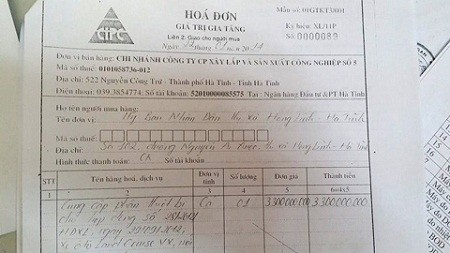 HOÁ ĐƠN
GIÁ TRỊ GIA TĂNG
Liên 2: Giao cho người mua
Ngày tháng năm
Mẫu số: 01GTKT3/001
Ký hiệu: XL/11P
Số: 0000089
Đơn vị bán hàng: CHI NHÁNH CÔNG TY CP XÂY LẮP VÀ SẢN XUẤT CÔNG NGHIỆP SỐ 5
Mã số thuế: 0101058736-012
Địa chỉ: 522 Nguyễn Công Trứ - Thành phố Hà Tĩnh - Tỉnh Hà Tĩnh
Điện thoại: 039.3854774; Số tài khoản: 52010000085575 Tại : Ngân hàng Đầu tư &PT Hà Tĩnh
Họ tên người mua hàng:
Tên đơn vị: Uỷ Ban Nhân Dân thị xã Hồng Lĩnh - Hà Tĩnh
Mã số thuế:
Địa chỉ: Số đường Nguyễn thị xã Hồng Lĩnh - Hà Tĩnh
Hình thức thanh toán: CK Số tài khoản
STT Tên hàng hoá, dịch vụ Đơn vị tính Số lượng Đơn giá Thành tiền
1 2 3 4 5 6=4x5
Cung cấp thiết bị Cái 01 3300000000 3.300.000.000
theo hợp đồng số
HĐKT, ngày
Xe ô tô Land VX,